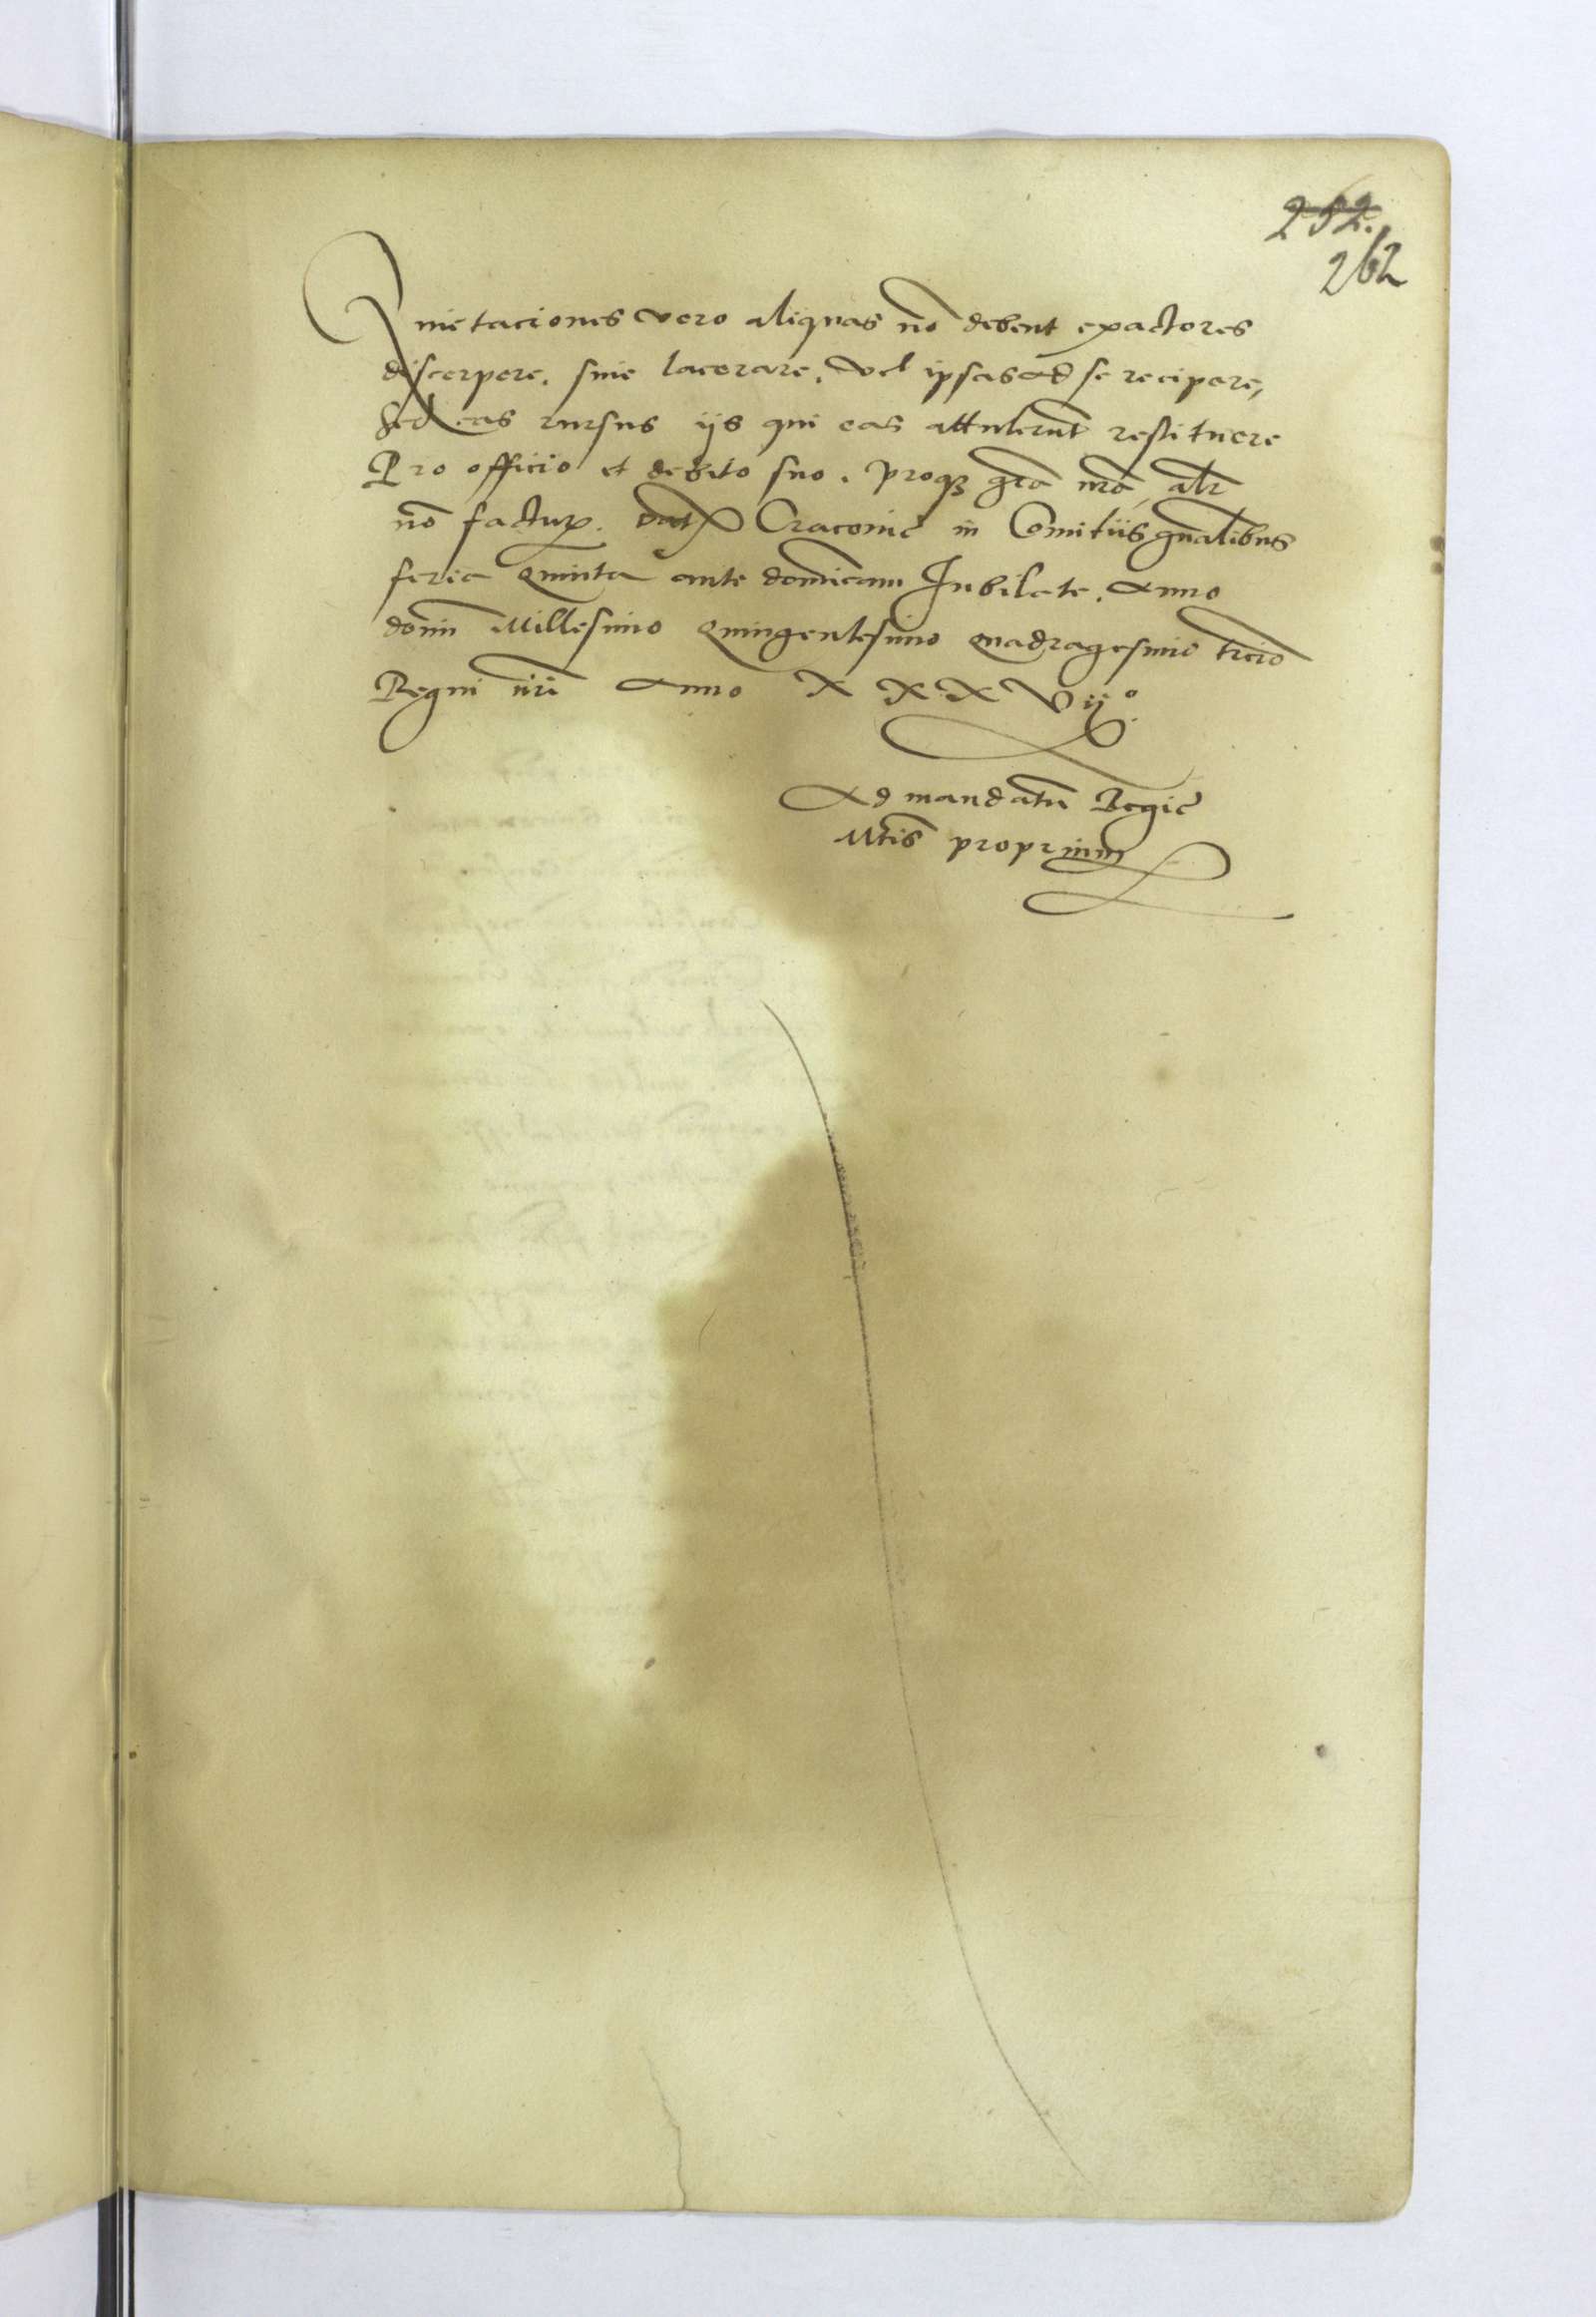 252.
262
Quietaciones vero aliquas nō debent exactores
discerpere, siue lacerare, vel ipsas ad se recipere,
Sed eas rursus ijs qui eas attulerūt restituere
Pro officio et debito suo. proqz gr̄a nr̄a, alr̄
nō factur. Dat Cracouie in Comitiis gn̄alibus
feria Quinta ante domīcam Iubilate. Anno
domī Millesimo Quingentesimo quadragesimo trc̄io
Regni nr̄i Anno XXXVij°.
Ad mandatū Regie
Mt̄is proprium